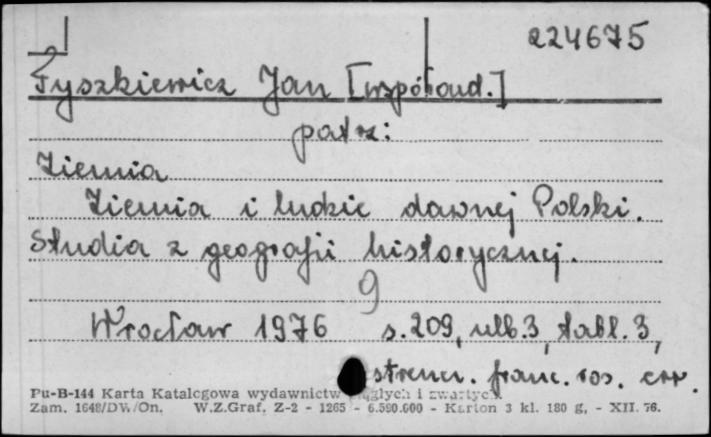 224675
Tyszkiewicz Jan [współaud.]
patrz:
Ziemia
Ziemia i ludzie dawnej Polski.
Studia z geografii historycznej.
9
Wrocław 1976 s. 209, ulb. 3, tabl. 3,
streszcz. franc. ros.
Pu-B-144 Karta Katalogowa wydawnictw ciągłych i zwartych
Zam. 1648/DW./On. W.Z.Graf. Z-2 - 1265 - 6.590.600 - Karton 3 kl. 180 g, - XII. 76.